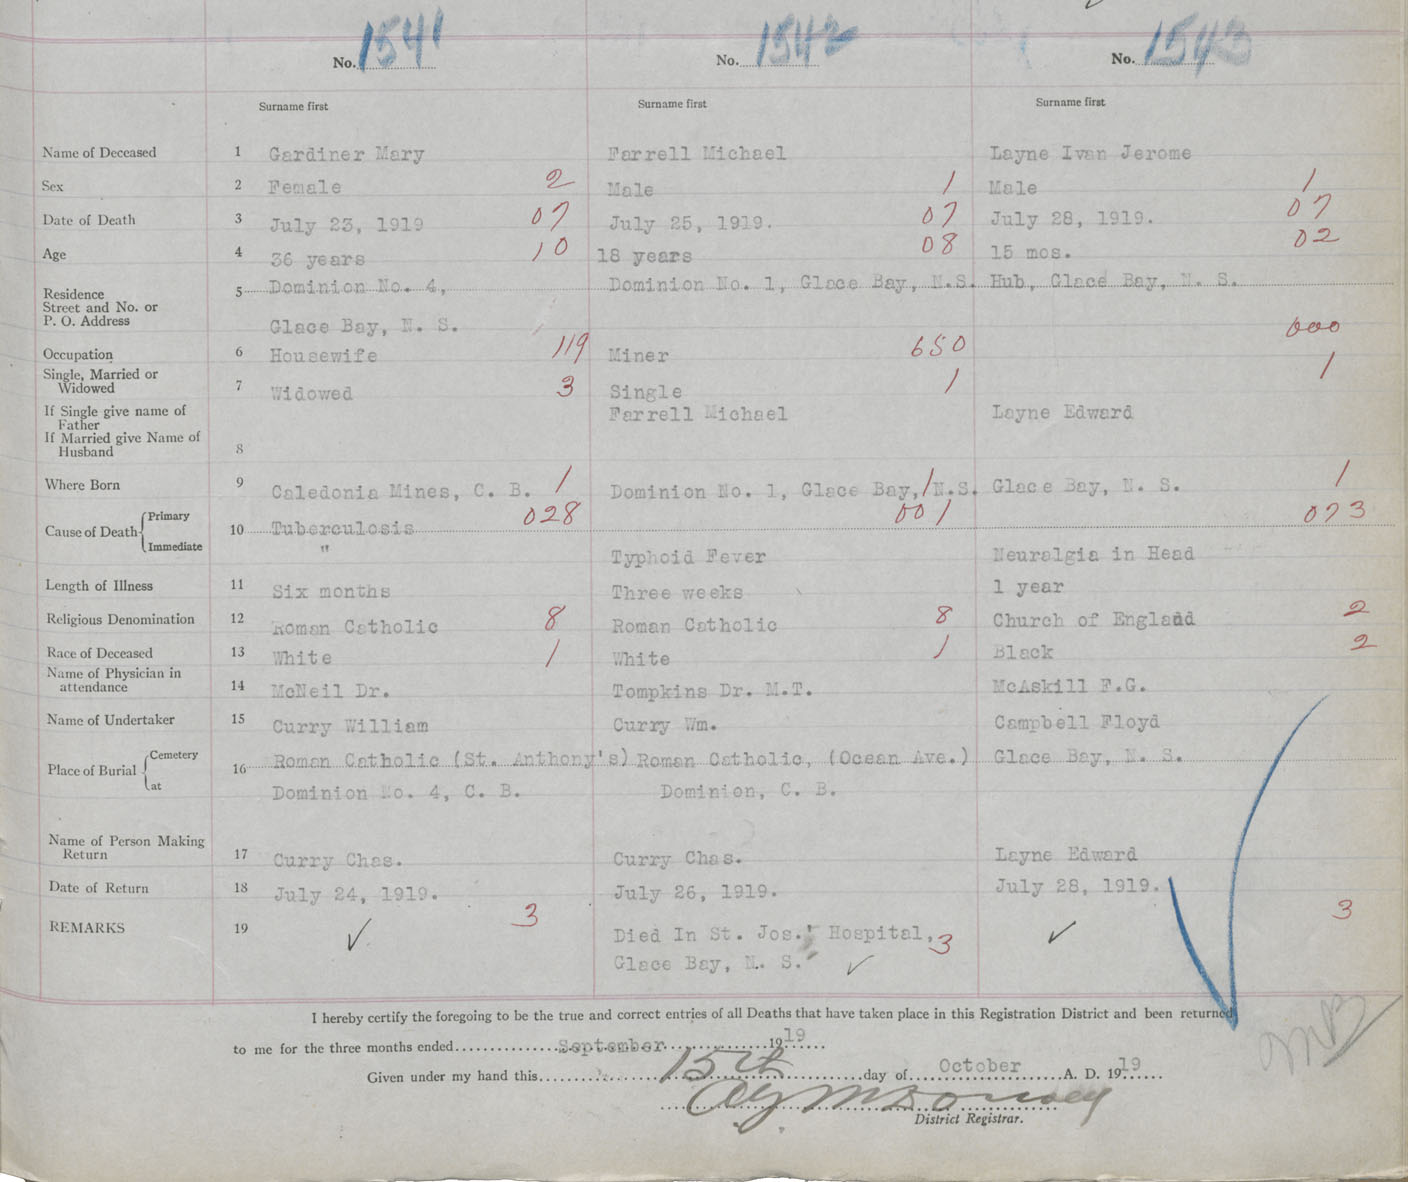 No. 1541 No. 1542 No. 1543
Surname first Surname first Surname first
Name of Deceased 1 Gardiner Mary Farrell Michael Layne Ivan Jerome
Sex 2 Female 2 Male 1 Male 1
Date of Death 3 July 23, 1919 07 July 25, 1919. 07 July 28, 1919. 07
Age 4 36 years 10 18 years 08 15 mos. 02
Residence
Street and No. or
P. O. Address
5 Dominion No. 4, Dominion No. 1, Glace Bay, N.S. Hub, Glace Bay, N. S.
Glace Bay, N. S. 000
Occupation 6 Housewife 119 Miner 650
Single, Married or
Widowed
7 Widowed 3 Single 1 1
If Single give name of
Father
Farrell Michael Layne Edward
If Married give Name of
Husband
8
Where Born 9 Caledonia Mines, C. B. 1 Dominion No. 1, Glace Bay, 1 N.S. Glace Bay, N. S. 1
Cause of Death Primary 10 Tuberculosis 028 001 073
Immediate " Typhoid Fever Neuralgia in Head
Length of Illness 11 Six months Three weeks 1 year
Religious Denomination 12 Roman Catholic 8 Roman Catholic 8 Church of England 2
Race of Deceased 13 White 1 White 1 Black 2
Name of Physician in
attendance
14 McNeil Dr. Tompkins Dr. M.T. McAskill F.G.
Name of Undertaker 15 Curry William Curry Wm. Campbell Floyd
Place of Burial Cemetery 16 Roman Catholic (St. Anthony's) Roman Catholic, (Ocean Ave.) Glace Bay, N. S.
at Dominion No. 4, C. B. Dominion, C. B.
Name of Person Making
Return
17 Curry Chas. Curry Chas. Layne Edward
Date of Return 18 July 24, 1919. July 26, 1919. July 28, 1919.
REMARKS 19 3 Died In St. Jos.' Hospital, 3 3
Glace Bay, N. S.
I hereby certify the foregoing to be the true and correct entries of all Deaths that have taken place in this Registration District and been returned
to me for the three months ended September 1919
Given under my hand this 15th day of October A. D. 1919
District Registrar.